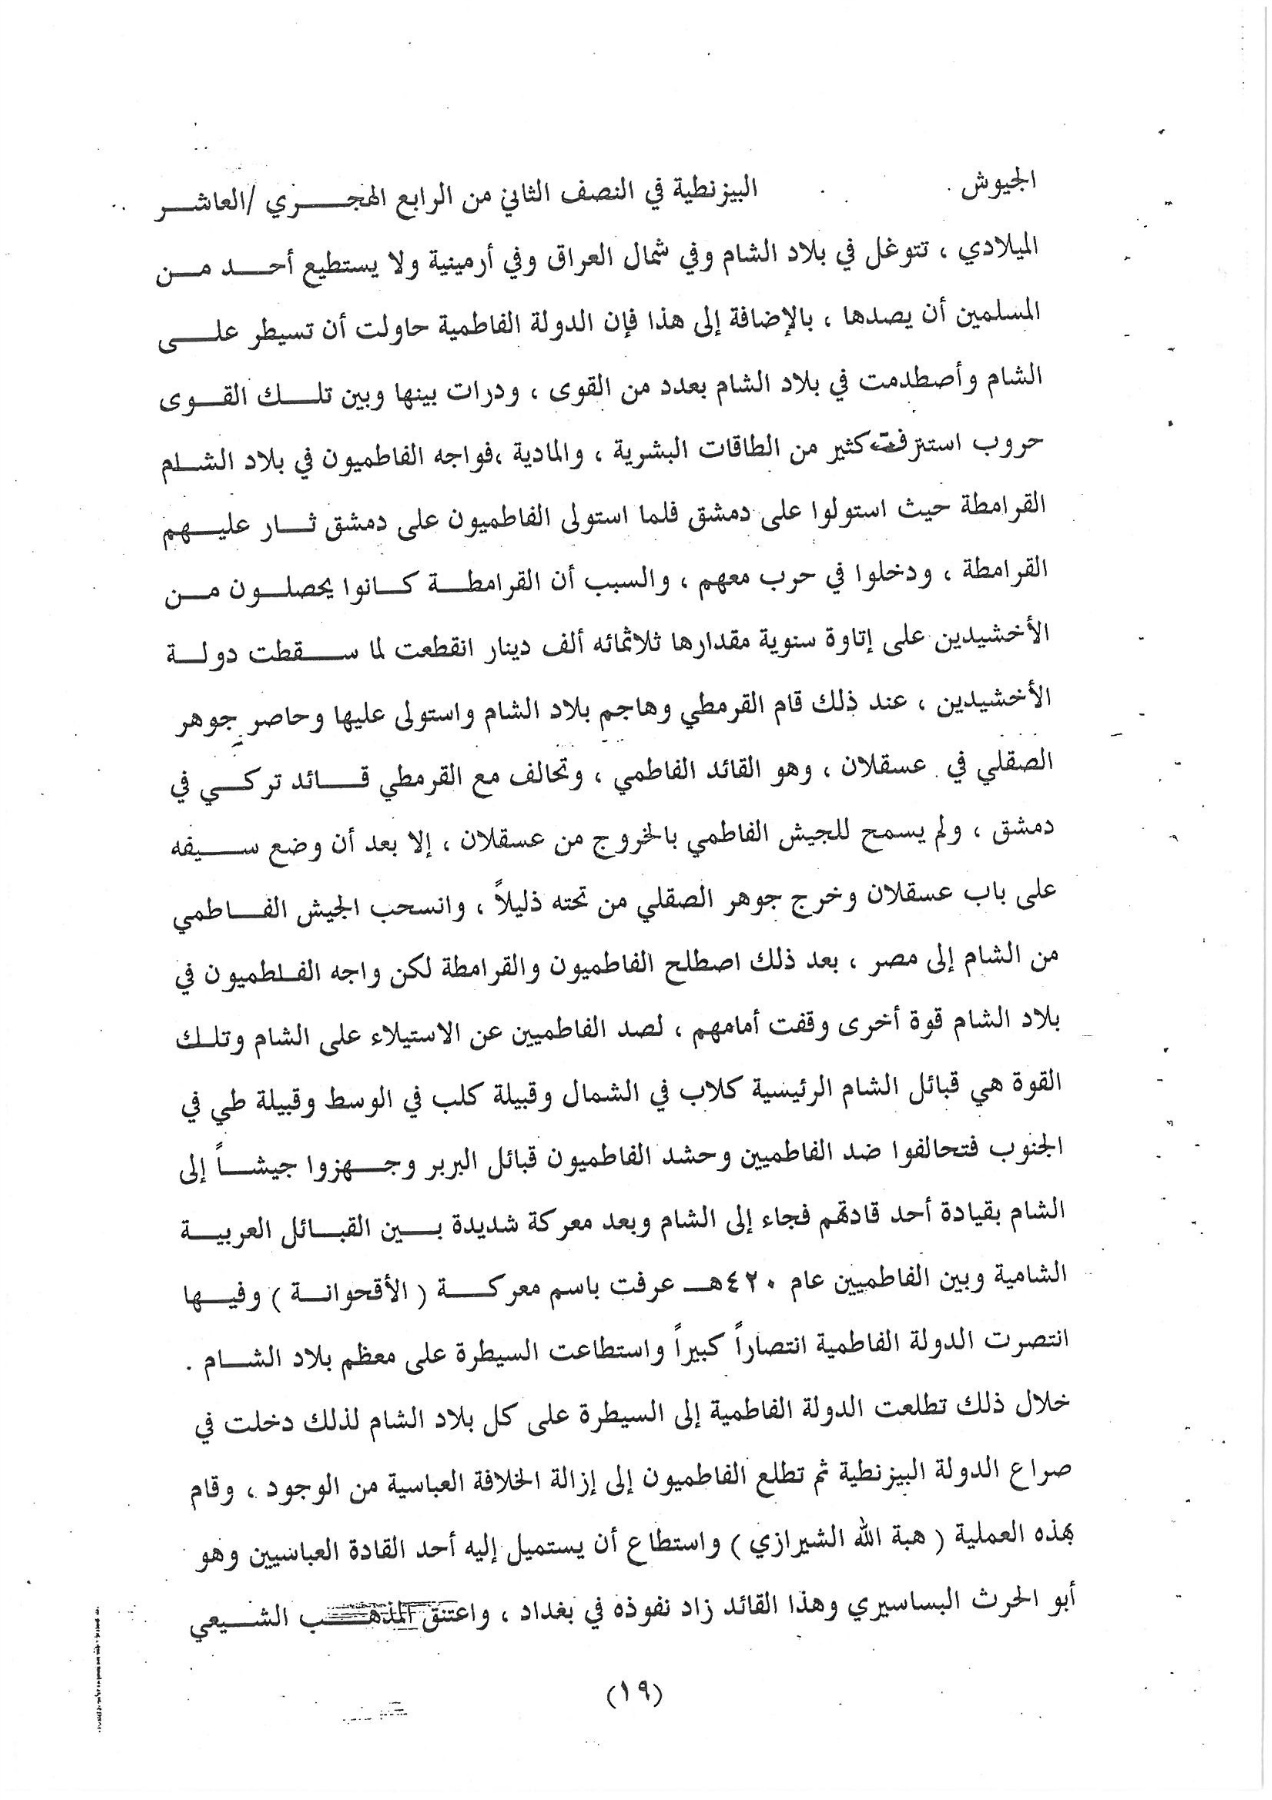 الجيوش البيزنطية في النصف الثاني من الرابع الهجري /العاشر
الميلادي ، تتوغل في بلاد الشام وفي شمال العراق وفي أرمينية ولا يستطيع أحد من
المسلمين أن يصدها ، بالإضافة إلى هذا فإن الدولة الفاطمية حاولت أن تسيطر على
الشام وأصطدمت في بلاد الشام بعدد من القوى ، ودرات بينها وبين تلك القوى
حروب استنزفت كثير من الطاقات البشرية ، والمادية ،فواجه الفاطميون في بلاد الشام
القرامطة حيث استولوا على دمشق فلما استولى الفاطميون على دمشق ثار عليهم
القرامطة ، ودخلوا في حرب معهم ، والسبب أن القرامطة كانوا يحصلون من
الأخشيدين على إتاوة سنوية مقدارها ثلاثمائه ألف دينار انقطعت لما سقطت دولة
الأخشيدين ، عند ذلك قام القرمطي وهاجم بلاد الشام واستولى عليها وحاصر جوهر
الصقلي في عسقلان ، وهو القائد الفاطمي ، وتحالف مع القرمطي قائد تركي في
دمشق ، ولم يسمح للجيش الفاطمي بالخروج من عسقلان ، إلا بعد أن وضع سيفه
على باب عسقلان وخرج جوهر الصقلي من تحته ذليلاً ، وانسحب الجيش الفاطمي
من الشام إلى مصر ، بعد ذلك اصطلح الفاطميون والقرامطة لكن واجه الفاطميون في
بلاد الشام قوة أخرى وقفت أمامهم ، لصد الفاطميين عن الاستيلاء على الشام وتلك
القوة هي قبائل الشام الرئيسية كلاب في الشمال وقبيلة كلب في الوسط وقبيلة طي في
الجنوب فتحالفوا ضد الفاطميين وحشد الفاطميون قبائل البربر وجهزوا جيشاً إلى
الشام بقيادة أحد قادتهم فجاء إلى الشام وبعد معركة شديدة بين القبائل العربية
الشامية وبين الفاطميين عام ٤٢٠هـ عرفت باسم معركة ( الأقحوانة ) وفيها
انتصرت الدولة الفاطمية انتصاراً كبيراً واستطاعت السيطرة على معظم بلاد الشام .
خلال ذلك تطلعت الدولة الفاطمية إلى السيطرة على كل بلاد الشام لذلك دخلت في
صراع الدولة البيزنطية ثم تطلع الفاطميون إلى إزالة الخلافة العباسية من الوجود ، وقام
بهذه العملية ( هبة الله الشيرازي ) واستطاع أن يستميل إليه أحد القادة العباسيين وهو
أبو الحرث البساسيري وهذا القائد زاد نفوذه في بغداد ، واعتنق المذهب الشيعي
(١٩)